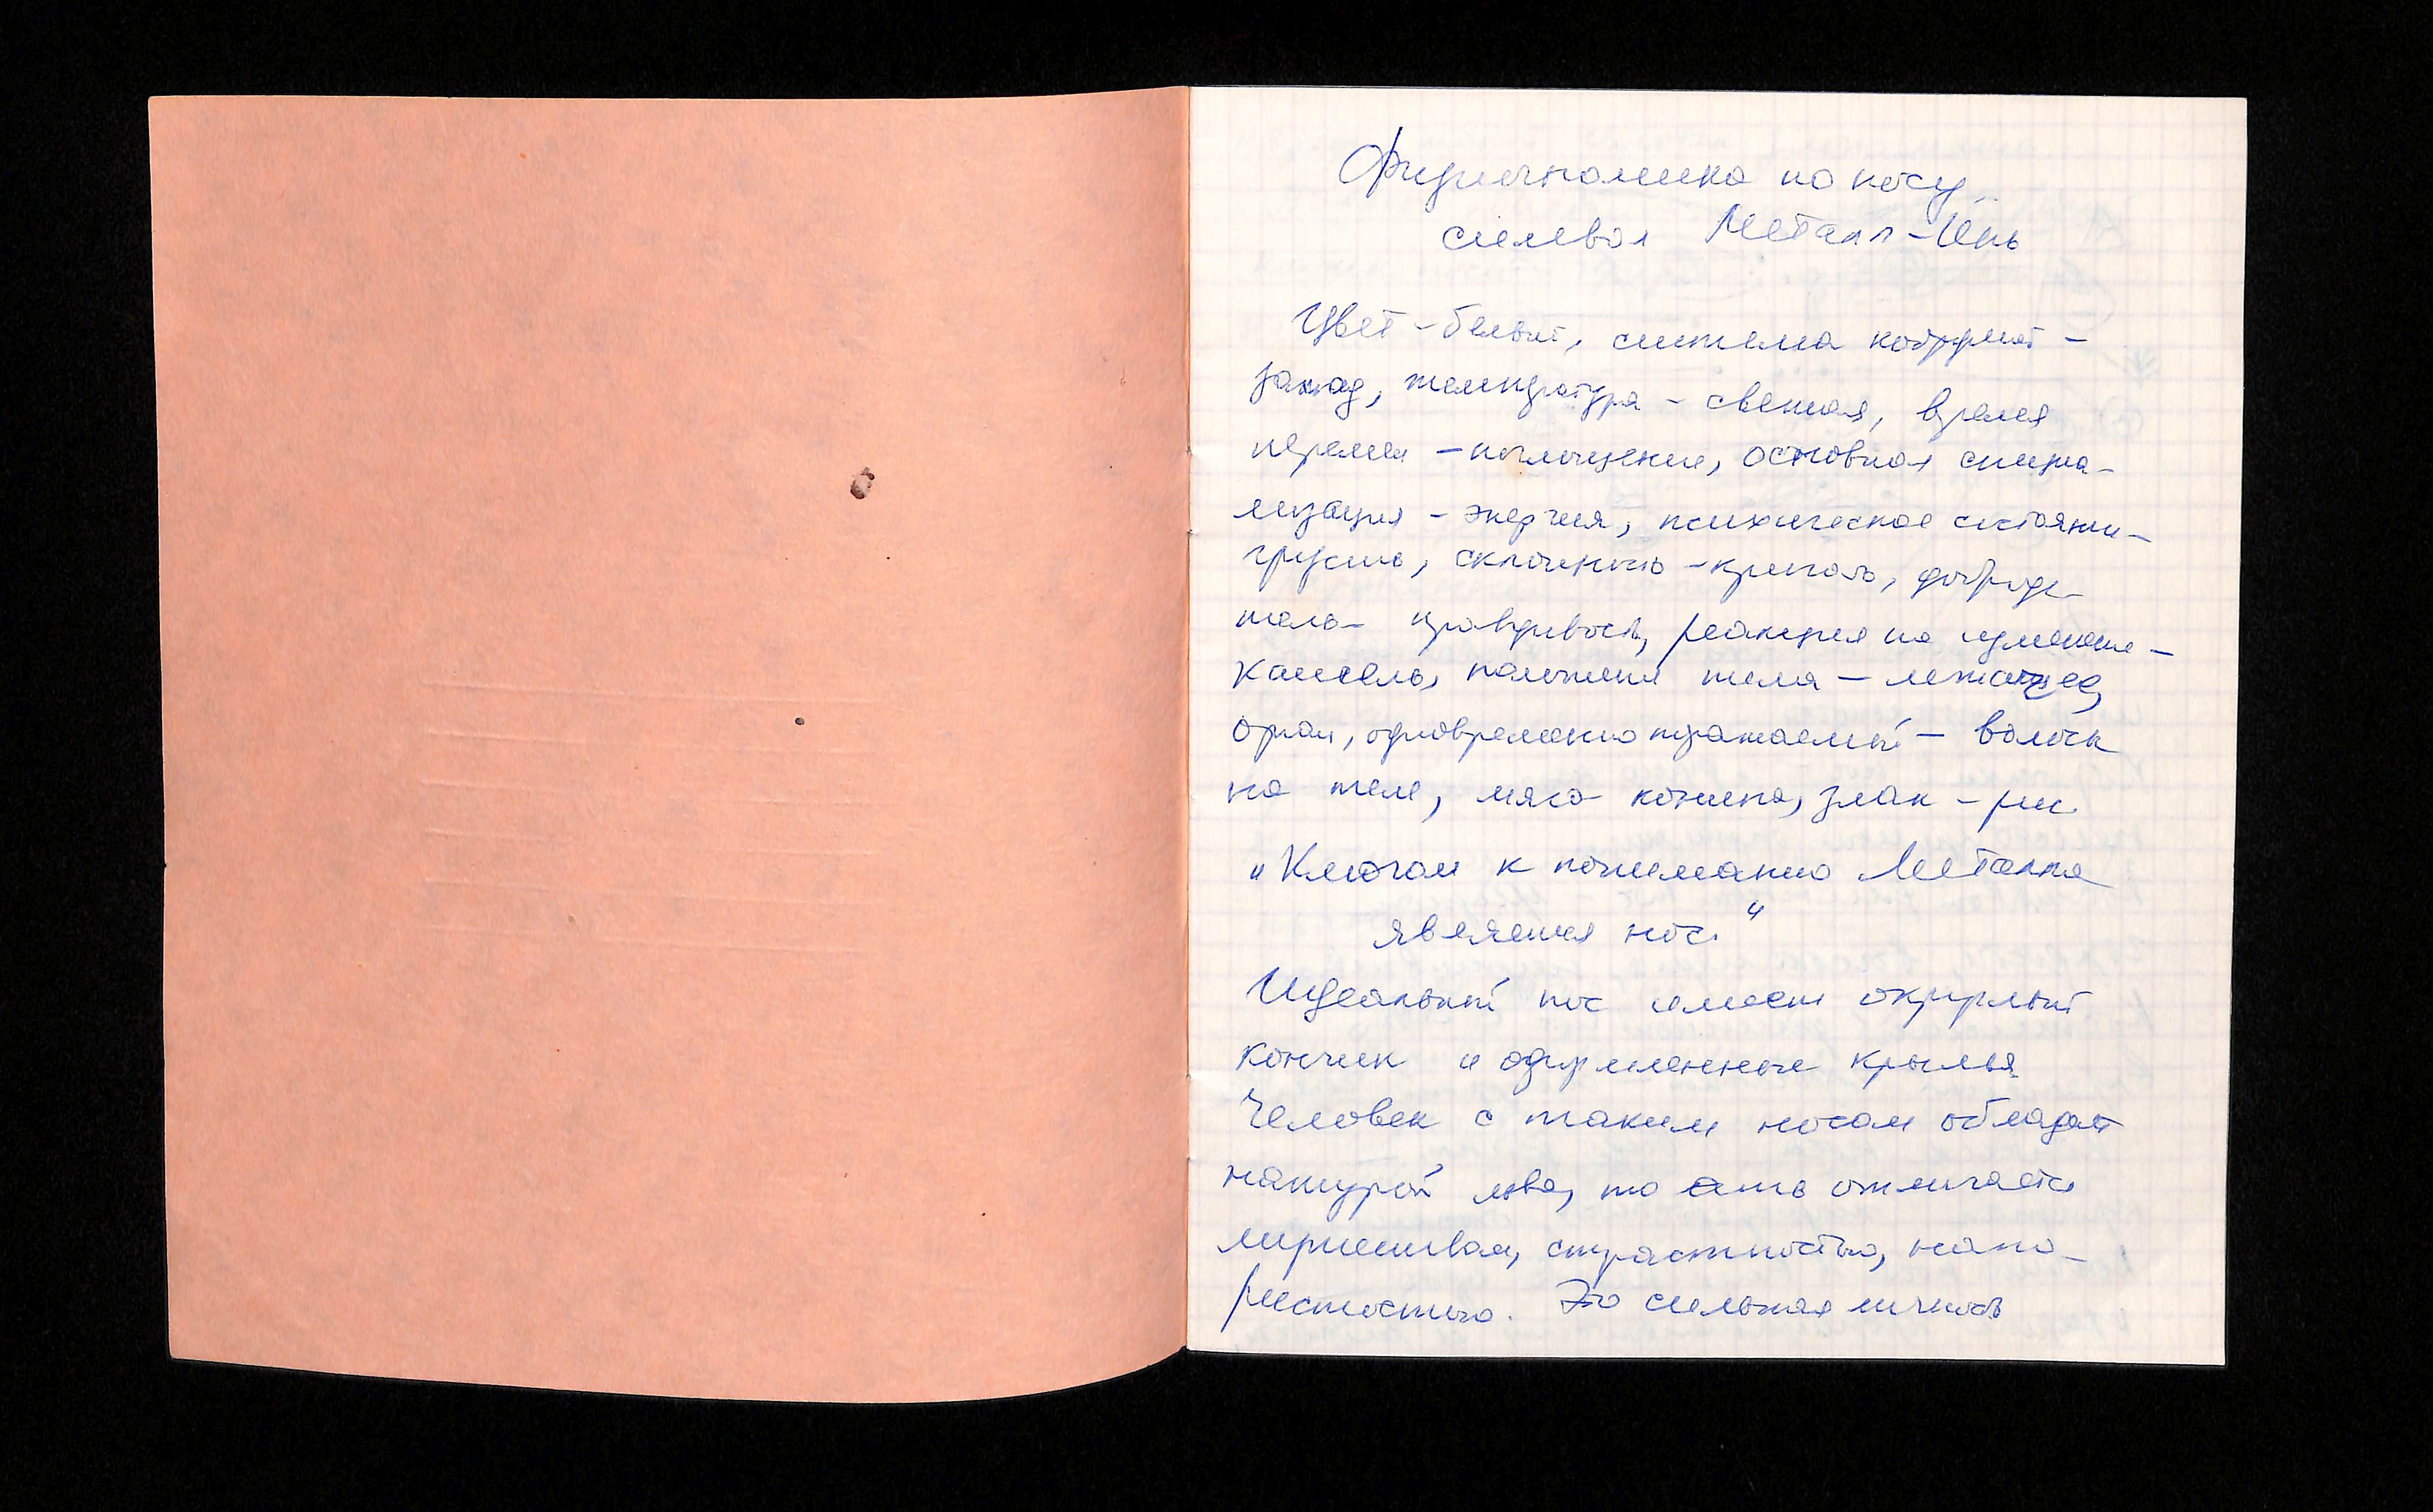 Физиогномика по носу
символ Металл-Инь
Цвет - белый, система координат -
запад, температура - свежая, время
перемен - поглощение, основная специа-
лизация - энергия, психическое состояние -
грусть, склонность - крепость, доброде-
тель - правдивость, реакция на изменение -
кашель, положение тела - лежащее,
орган, одновременно поражаемый - волосы
на теле, мясо - конина, злак - рис
"Ключом к пониманию Металла
является нос."
Идеальный нос имеет округлый
кончик и одухотворенные крылья
Человек с таким носом обладает
натурой льва, то есть отличается
мужеством, страстностью, напо-
ристостью. Это сильная личность